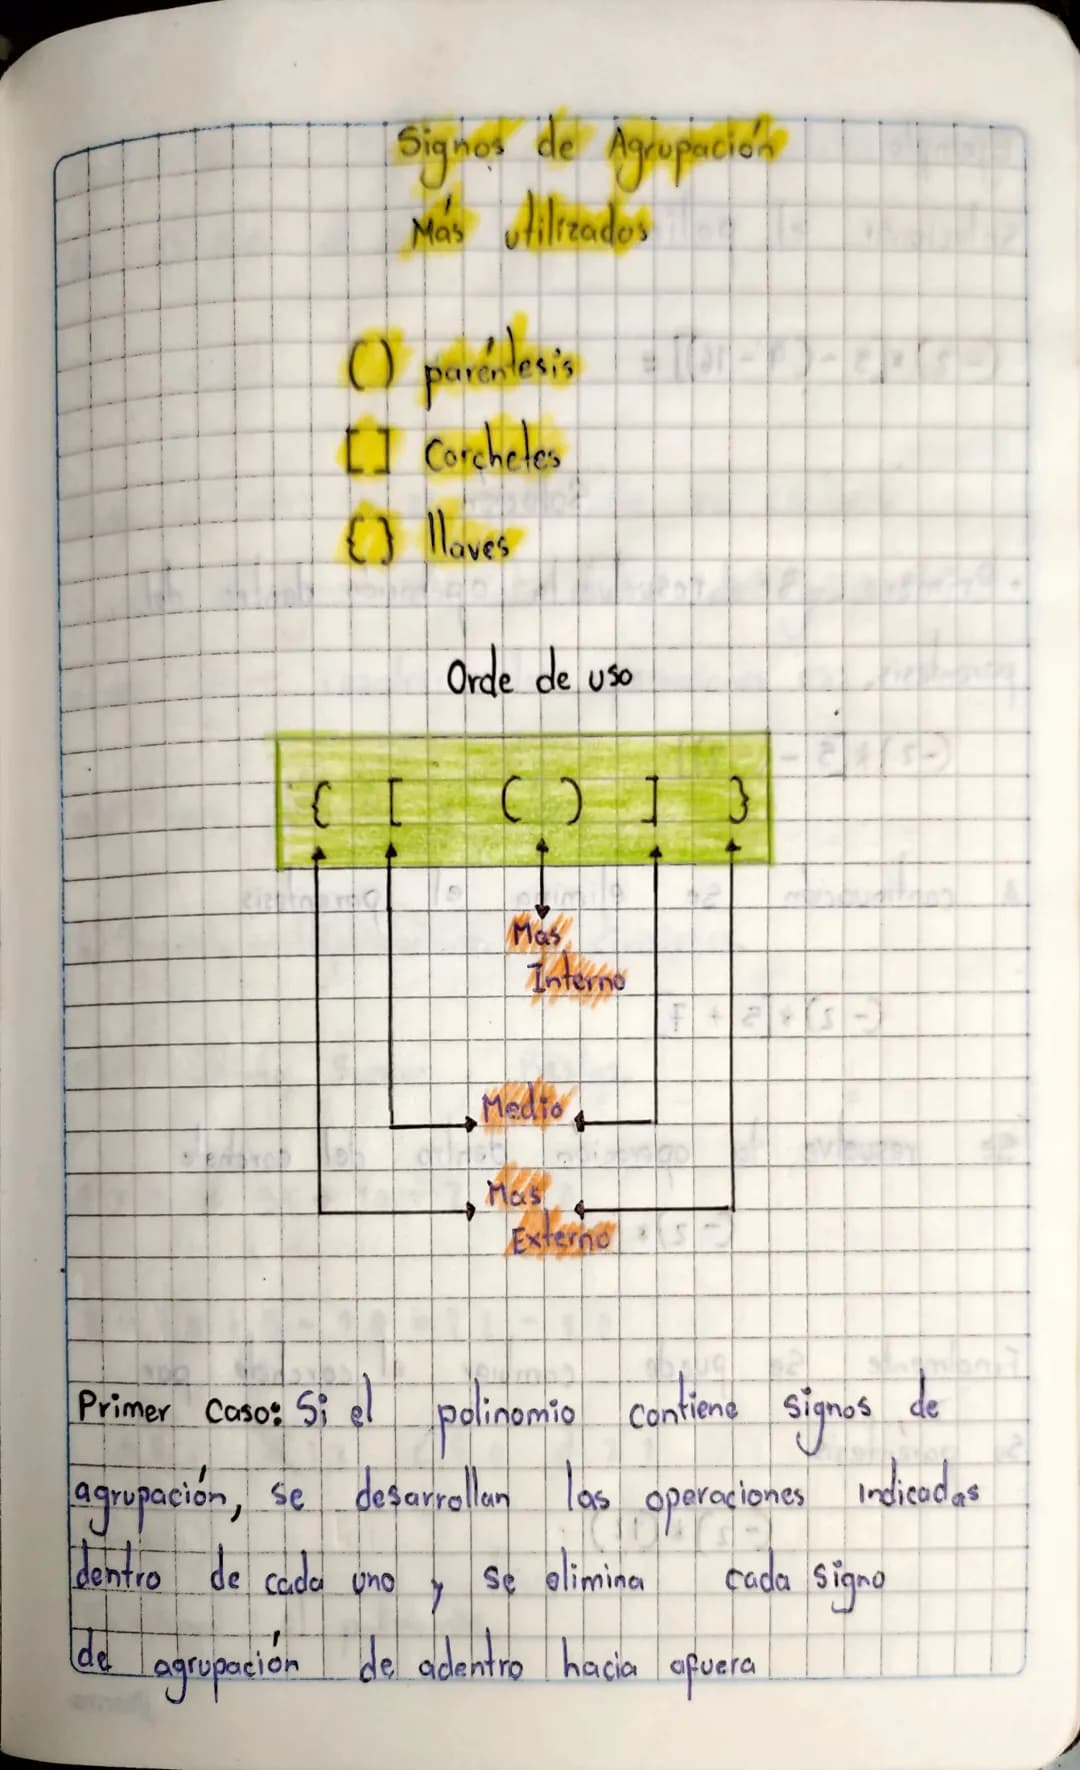 Signos de Agrupación
Más utilizados
() paréntesis
[] Corchetes
{} llaves
Orde de uso
{ [ ( ) ] }
Mas
Interno
Medio
Mas
Externo
Primer caso: Si el polinomio contiene signos de
agrupación, se desarrollan las operaciones indicadas
dentro de cada uno y se elimina cada signo
de agrupación de adentro hacia afuera